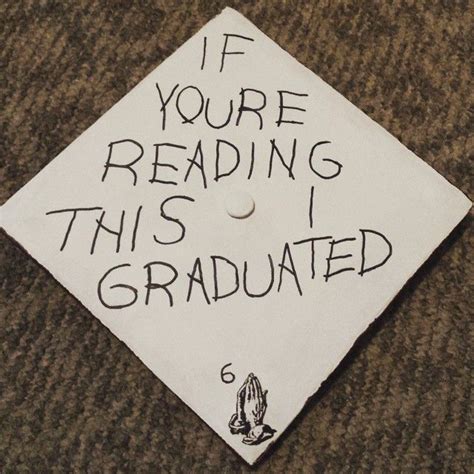 IF
YOURE
READING
THIS I
GRADUATED
6